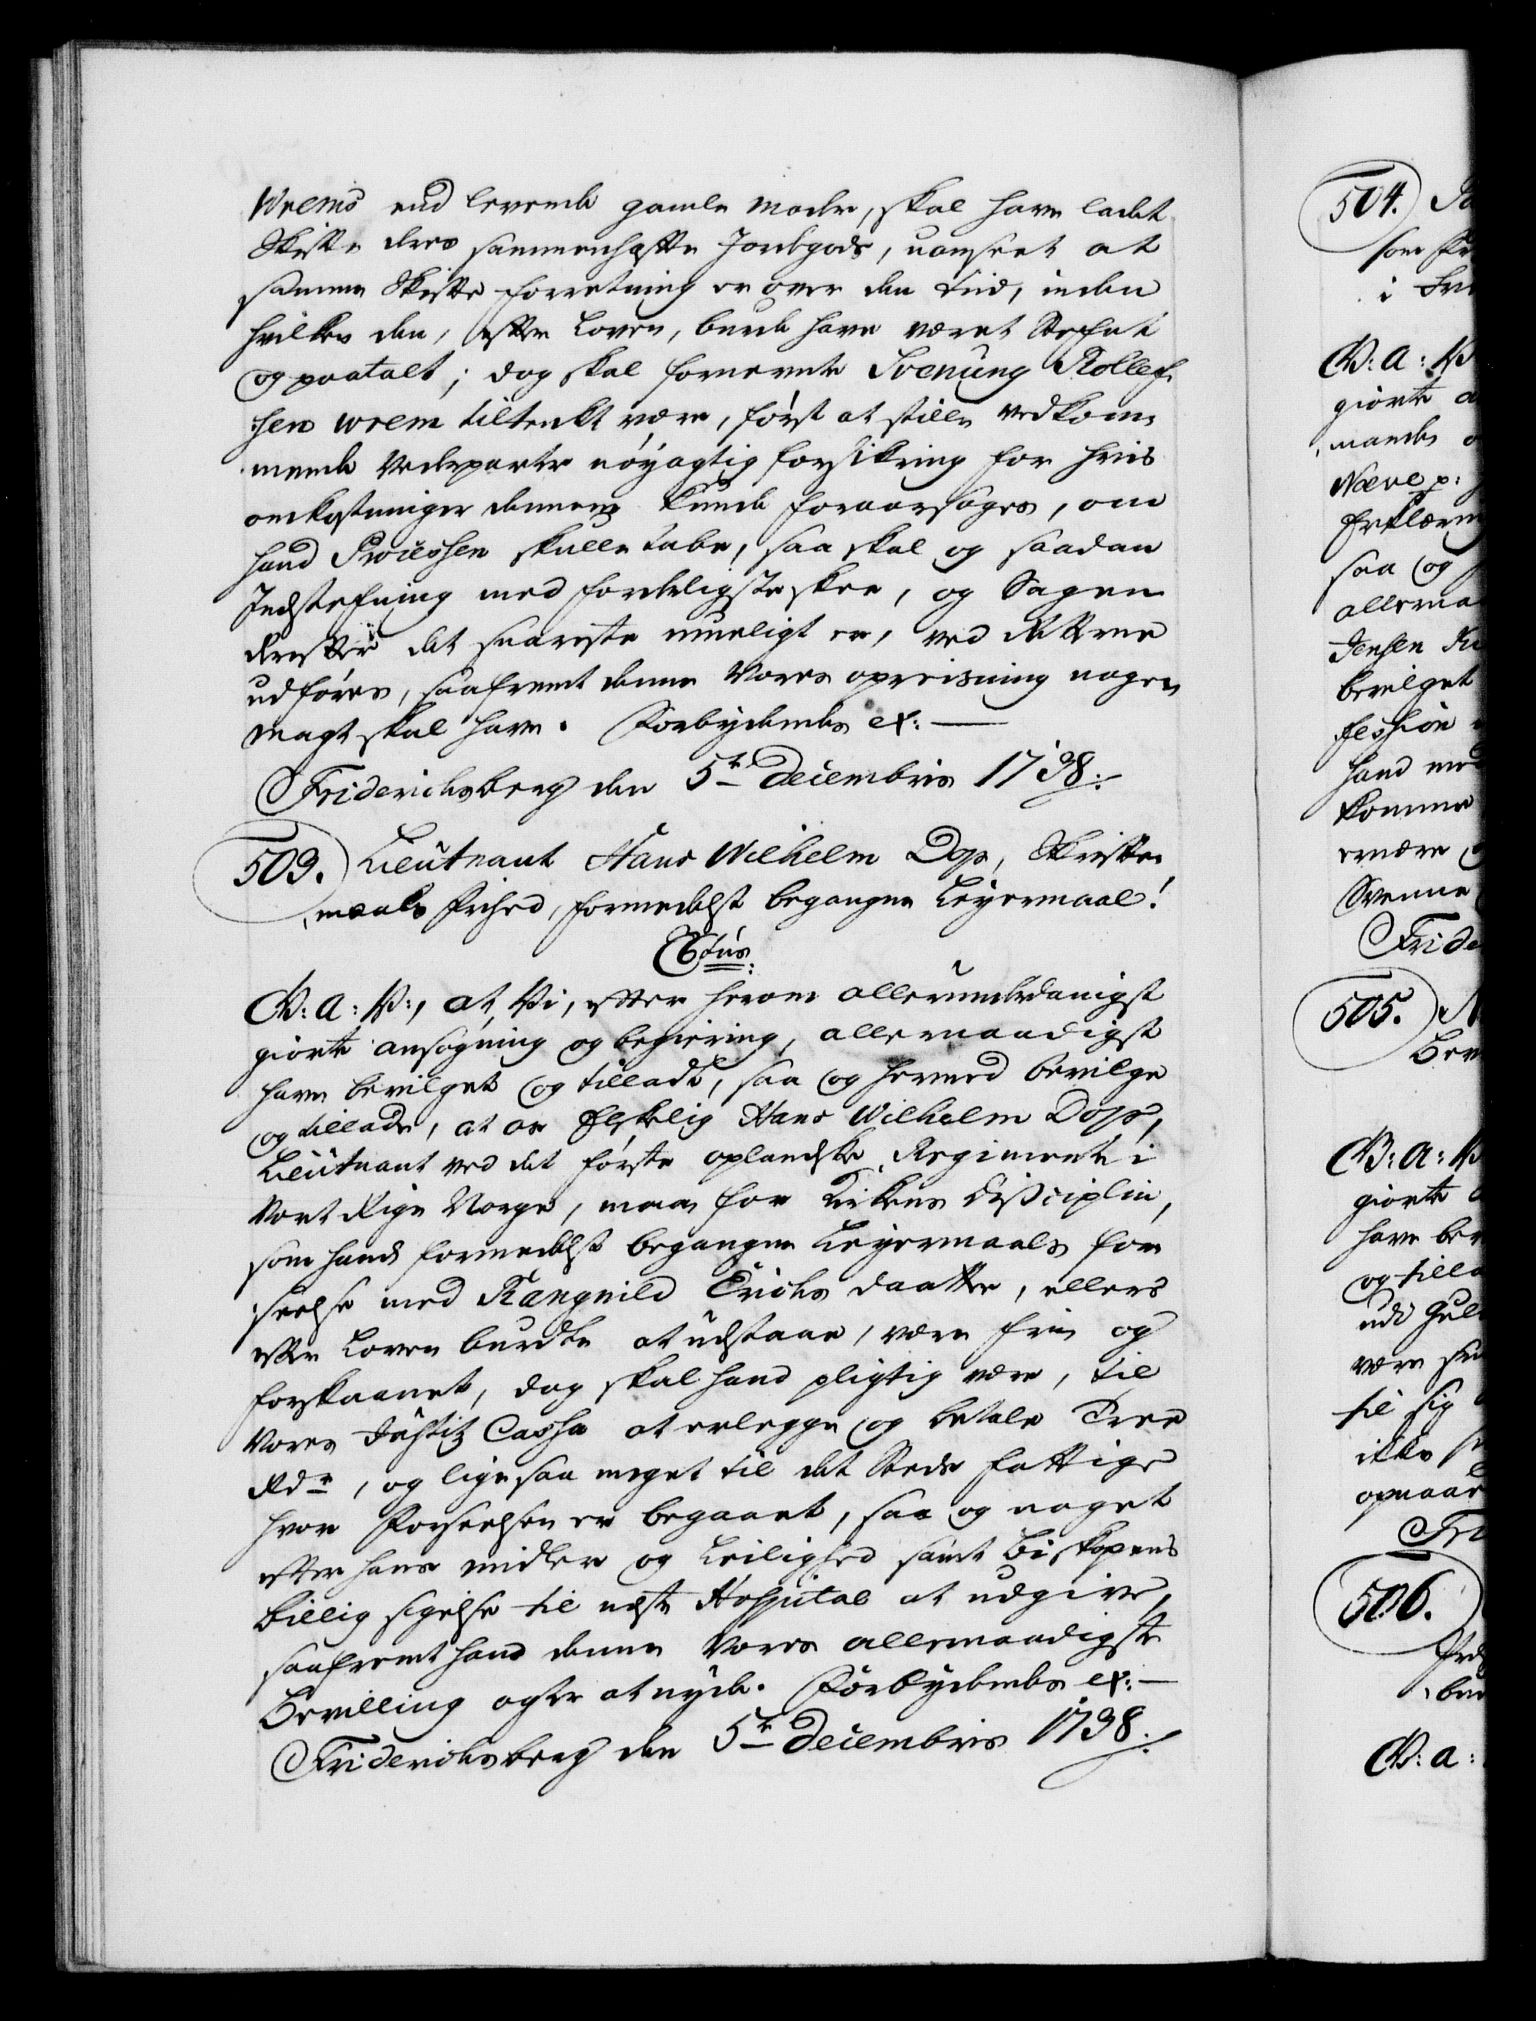 Wrems end levende gamle Moder, skal have ladet
Skifte deres sammenhefte Jordegods, uanseet at
samme Skifte forretning er over den tiid, inden
hvilken den, efter Loven, burde have været Stefnt
og paatalt; dog skal fornevnte Svenüng Rollef-
sen Wrem tiltenkt være, først at stille vedkom-
mende Vederparter nöyagtig forsikring for hvis
omkostninger dennem kunde foraarsages, om
hand Processen skulle tabe, saa skal og saadan
Indstefning med forderligste skee, og Sagen
derefter det snareste mueligt er, ved Retterne
udföres, saafremt denne Vores opreisning nogen
magt skal have. Forbydendes ex:
Friderichsberg den 5te Decembris 1738.
503. Lieutnant Hans Wilhelm Dop, Skrifte-
maals frihed, formedelst begangne Leyermaal!
Cͭus:
V: A: V:, at Vi, efter herom allerunderdanigst
giorte ansøgning og begiering, allernaadigst
have bevilget og tilladt, saa og hermed bevilge
og tillade, at os Elskelig Hans Wilhelm Dop,
Lieutnant ved det første oplandske Regimente i
Vort Rige Norge, maa for Kirkens Disciplin,
som hand formedelst begangne Leyermaals for
seelse med Rangnild Erichs daatter, ellers
efter Loven burdte at udstaae, være frie og
forskaanet, dog skal hand pligtig være, til
Vores Justitz Cassa at erlegge og betale Tree
Rdr, og lige saa meget til det Steds fattige
hvor Forseelsen er begaaet, saa og noget
efter hans midler og Leilighed samt Biskopens
billig sigelse til neste Hospital at udgive,
saafremt hand denne Vores allernaadigste
Bevilling agter at nyde. Forbydendes ex:
Friderichsberg den 5te Decembris 1738.
504.
i
V: A: V
giorte
mandes
Næve p:
Erklæring
saa og
allerna
Jensen
bevilget
fession
hand med
komme
ernære
Svenne
Fride
505.
V: A: V
giorte
have be
og tilla
udi
være
til sig
ikke
opnaae
Fri
506.
V: A: